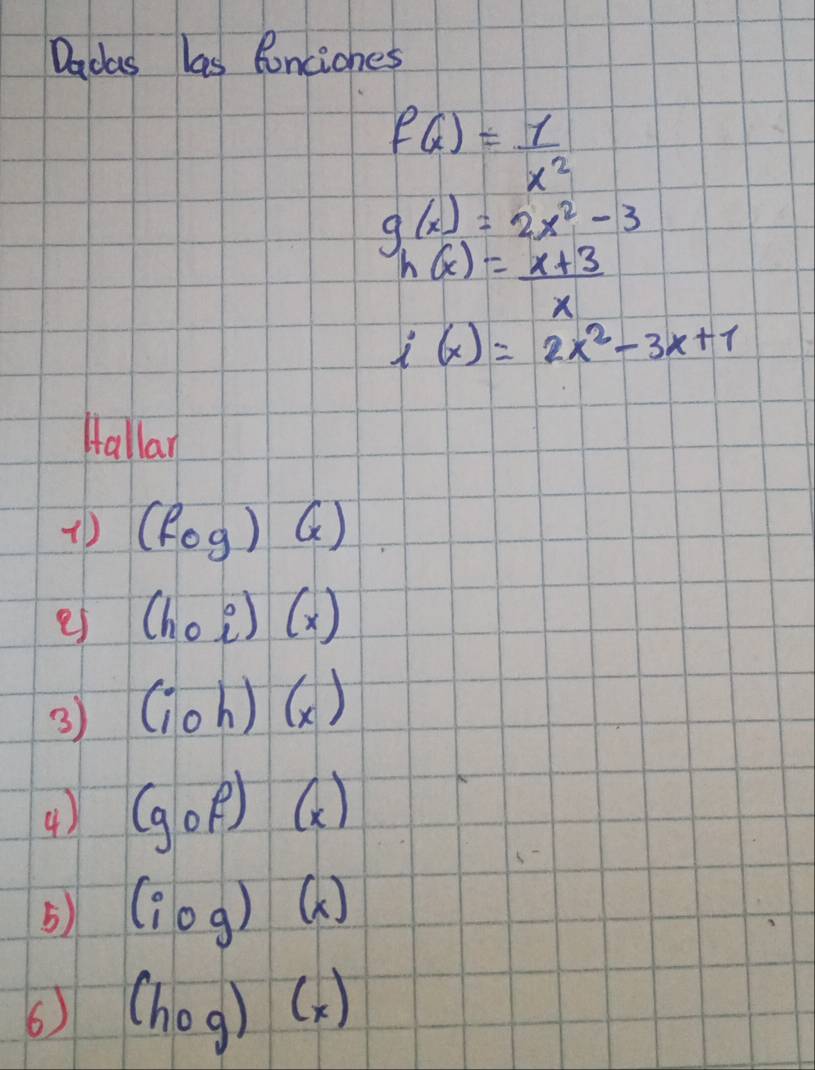 Dadas las funciones
f(x) = 1/x²
g(x) = 2x² - 3
h(x) = x+3/x
i(x) = 2x² - 3x + 1
Hallar
1) (fog) (x)
2) (hoi) (x)
3) (ioh) (x)
4) (gof) (x)
5) (iog) (x)
6) (hog) (x)